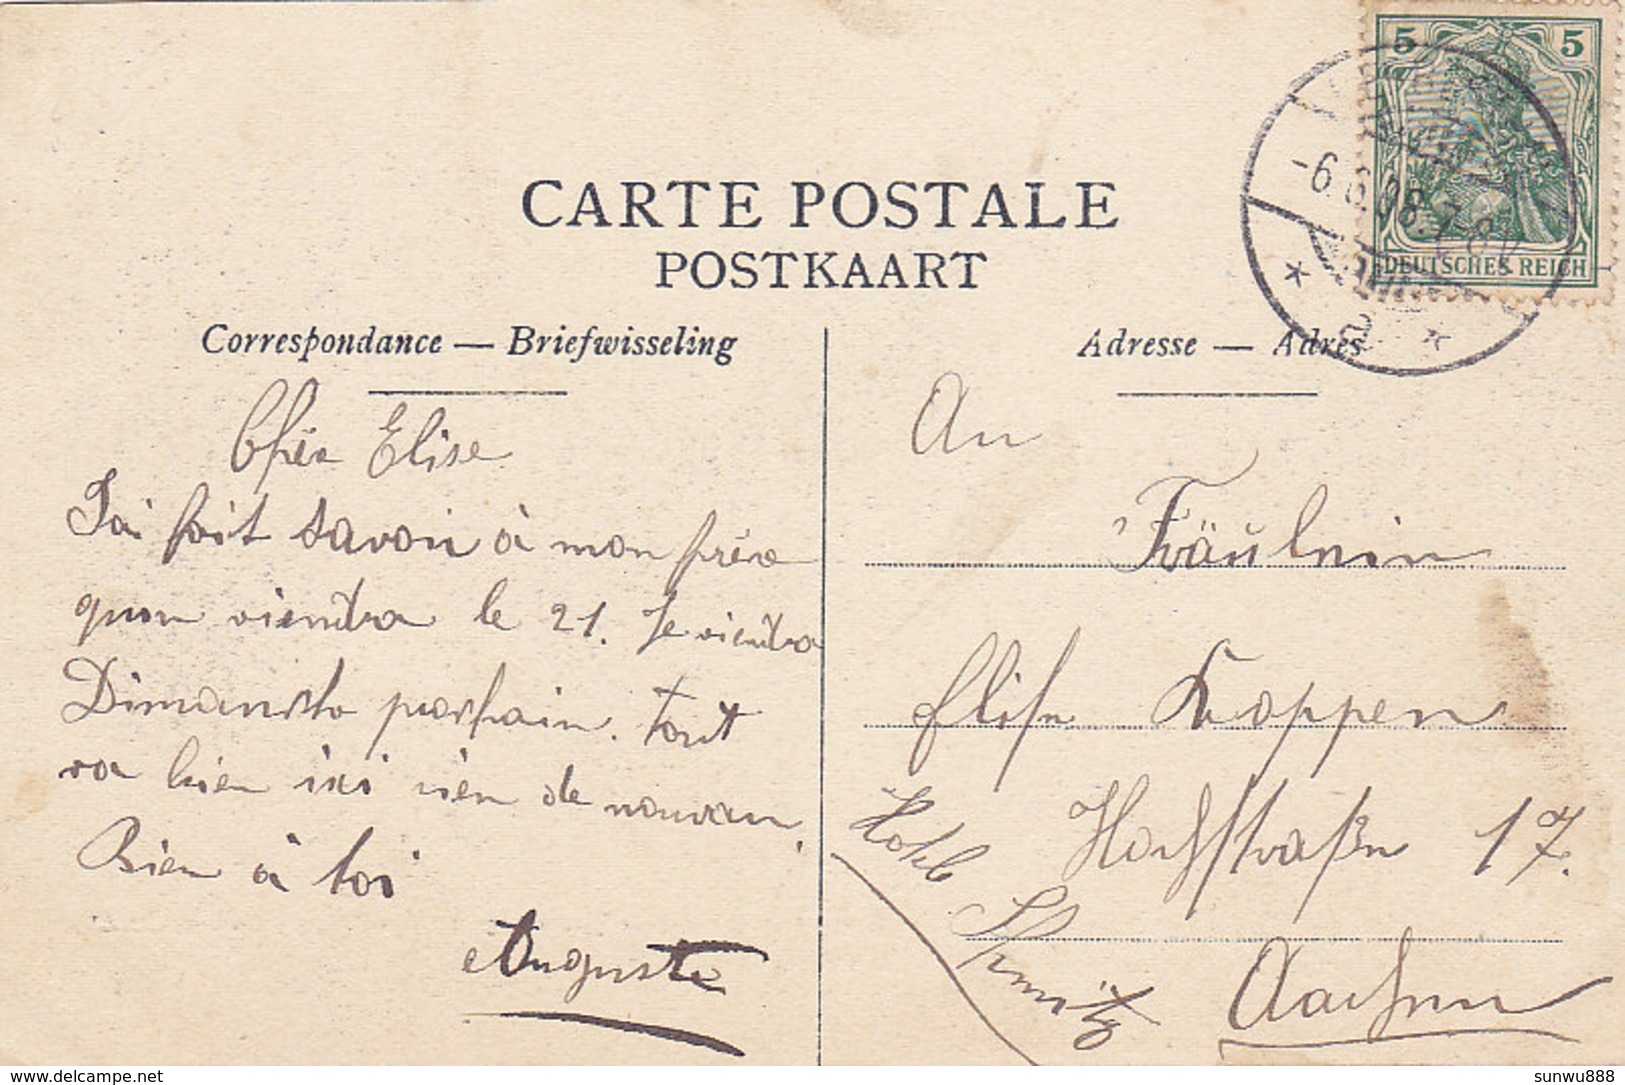 CARTE POSTALE
POSTKAART
Correspondance — Briefwisseling
Adresse — Adres
5 5
DEUTSCHES REICH
-6.6.08.7-8V
Chèr Elise
J'ai fait savoir à mon frère
quon viendra le 21. Je viendra
Dimanche prochain. Tout
va bien ici rien de nouveau
Bien à toi
Auguste
An
Fräulein
Elise Koppen
Hochstraße 17.
Hotel
Schmitz
Aachen
delcampe.net
sunwu888